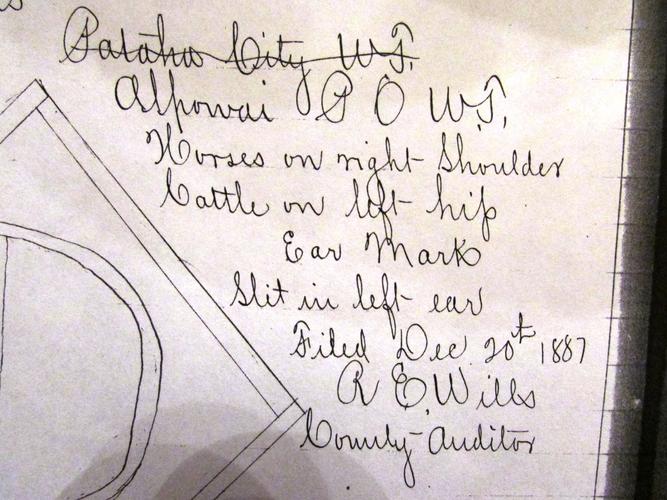 Pataha City W.T.
Alpowai P O W.T.
Horses on right Shoulder
Cattle on left hip
Ear Mark
Slit in left ear
Filed Dec 20th 1887
R E. Wills
County Auditor